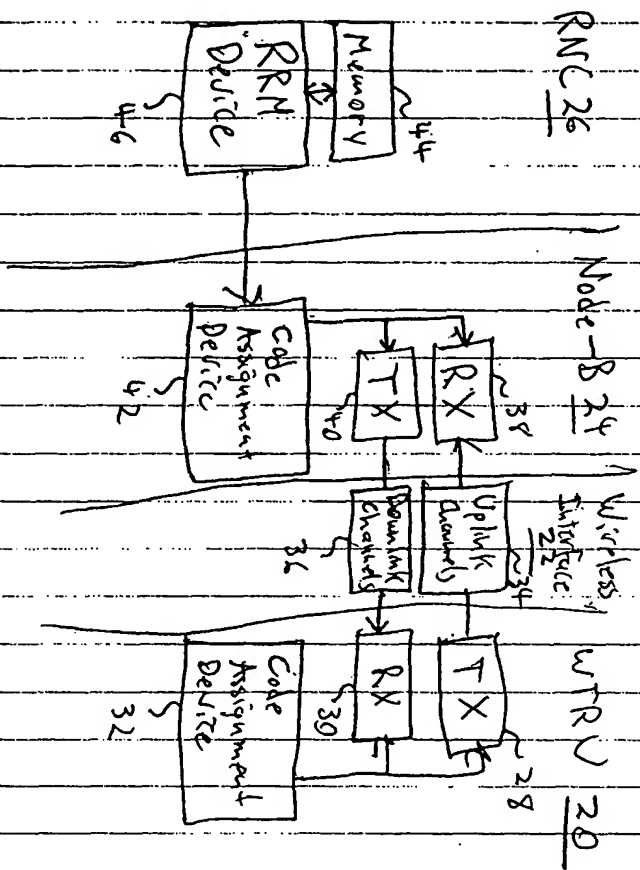 RNC 26
Memory
44
RRM
Device
46
Node-B 24
RX
38
TX
40
Code
Assignment
Device
42
Wireless
Interface
22
Uplink
channels
34
Downlink
channels
36
WTRU 20
TX
28
RX
30
Code
Assignment
Device
32